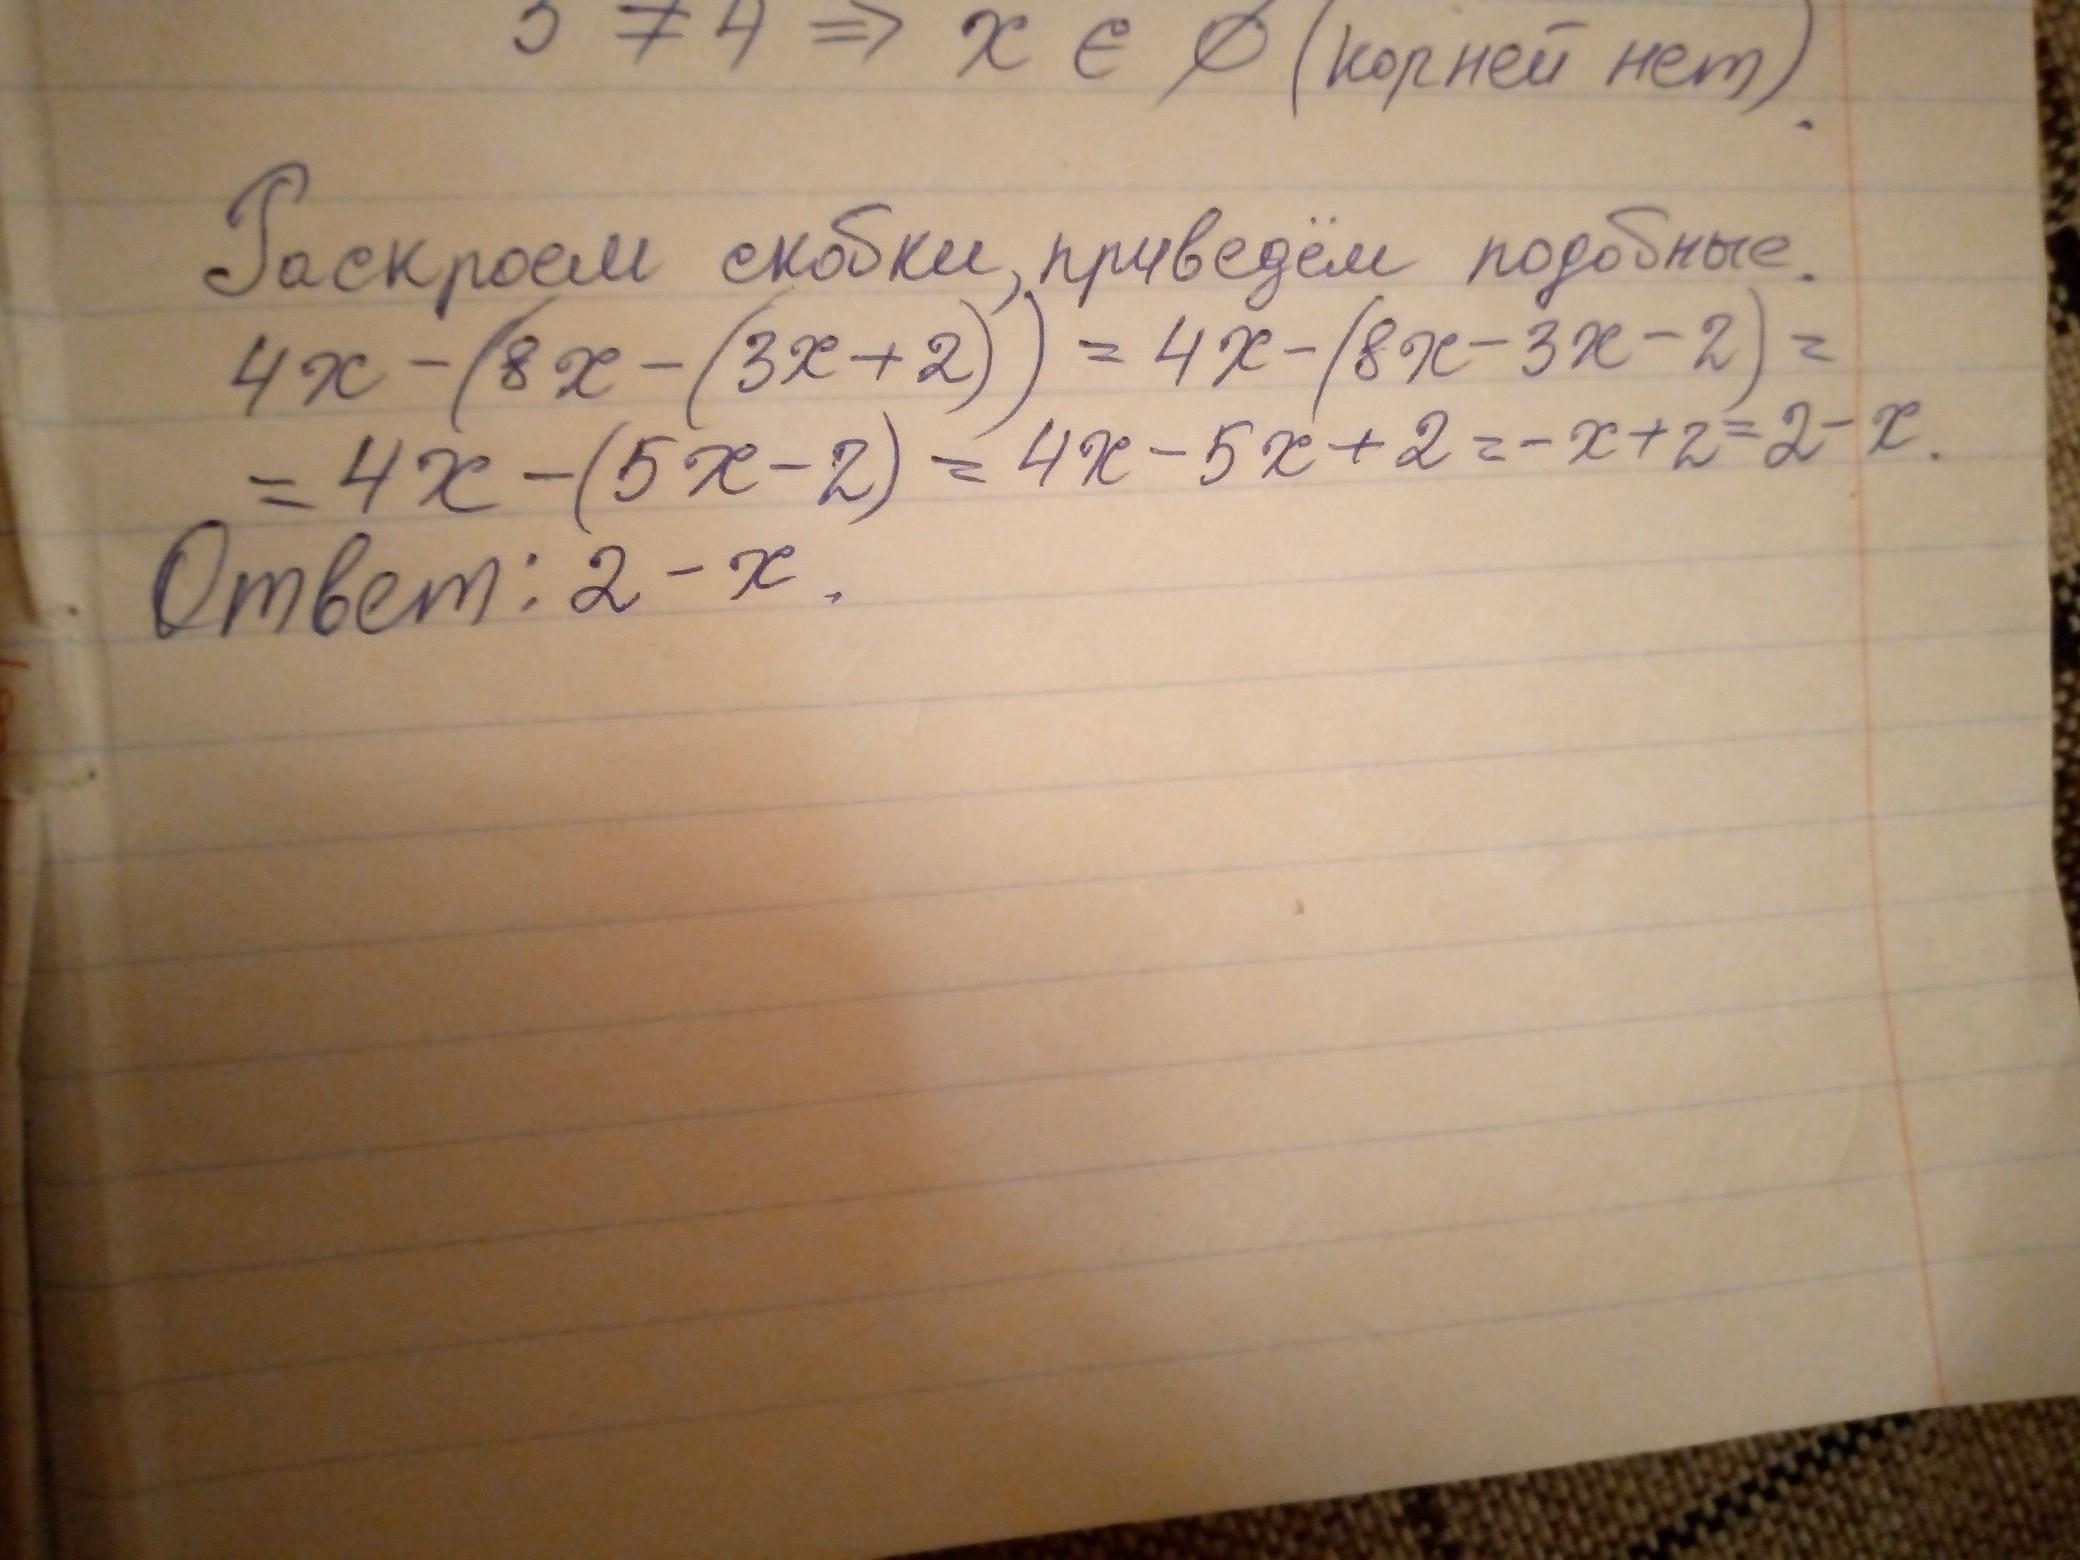 3 ≠ 4 ⇒ x ∈ ∅ (корней нет).
Раскроем скобки, приведём подобные.
4x - (8x - (3x + 2)) = 4x - (8x - 3x - 2) =
= 4x - (5x - 2) = 4x - 5x + 2 = -x + 2 = 2 - x.
Ответ: 2 - x.